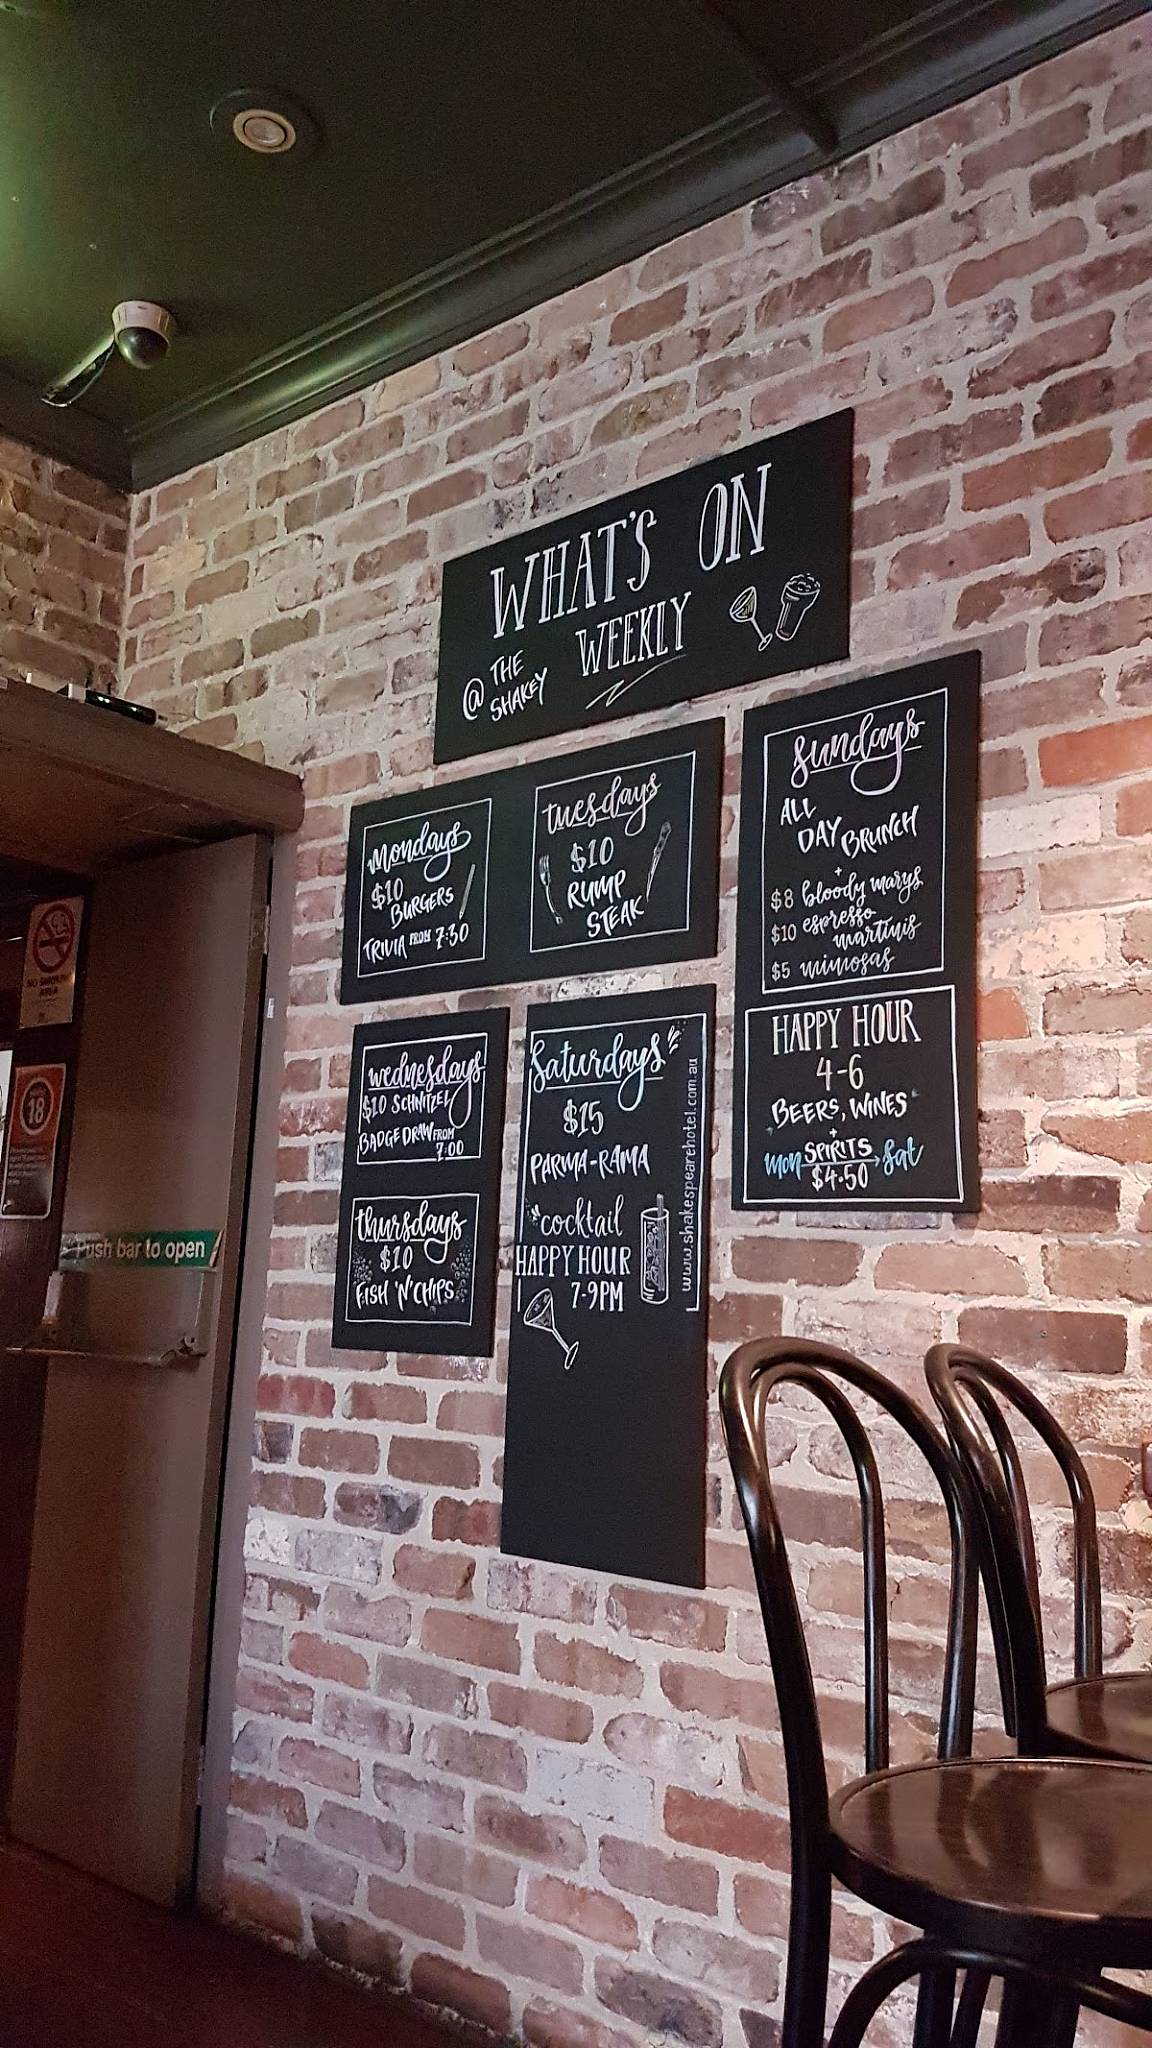 WHAT'S ON
WEEKLY
@ THE
SHAKEY
mondays
$10
BURGERS
TRIVIA FROM 7:30
tuesdays
$10
RUMP
STEAK
sundays
ALL
DAY BRUNCH
+
$8 bloody marys
$10 espresso
martinis
$5 mimosas
HAPPY HOUR
4-6
BEERS, WINES
+
SPIRITS
mon → sat
$4.50
wednesdays
$10 SCHNITZEL
BADGE DRAW FROM
7:00
thursdays
$10
FISH 'N' CHIPS
Saturdays
$15
PARMA-RAMA
cocktail
HAPPY HOUR
7-9PM
www.shakespearehotel.com.au
NO SMOKING
AREA
18
Push bar to open